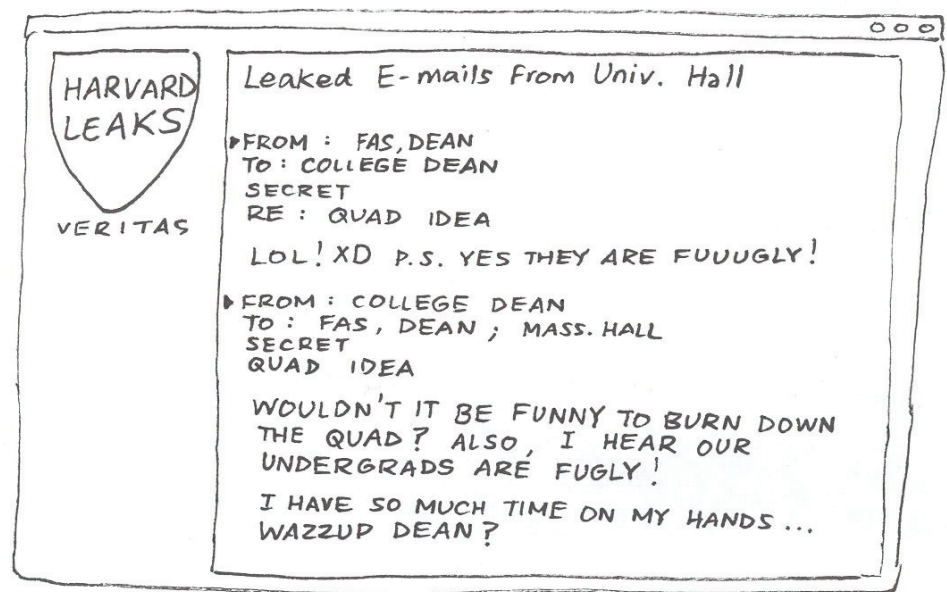 HARVARD
LEAKS
VERITAS
Leaked E-mails From Univ. Hall
FROM : FAS, DEAN
TO : COLLEGE DEAN
SECRET
RE : QUAD IDEA
LOL! XD P.S. YES THEY ARE FUUUGLY!
FROM : COLLEGE DEAN
TO : FAS, DEAN ; MASS. HALL
SECRET
QUAD IDEA
WOULDN'T IT BE FUNNY TO BURN DOWN
THE QUAD? ALSO, I HEAR OUR
UNDERGRADS ARE FUGLY!
I HAVE SO MUCH TIME ON MY HANDS...
WAZZUP DEAN?